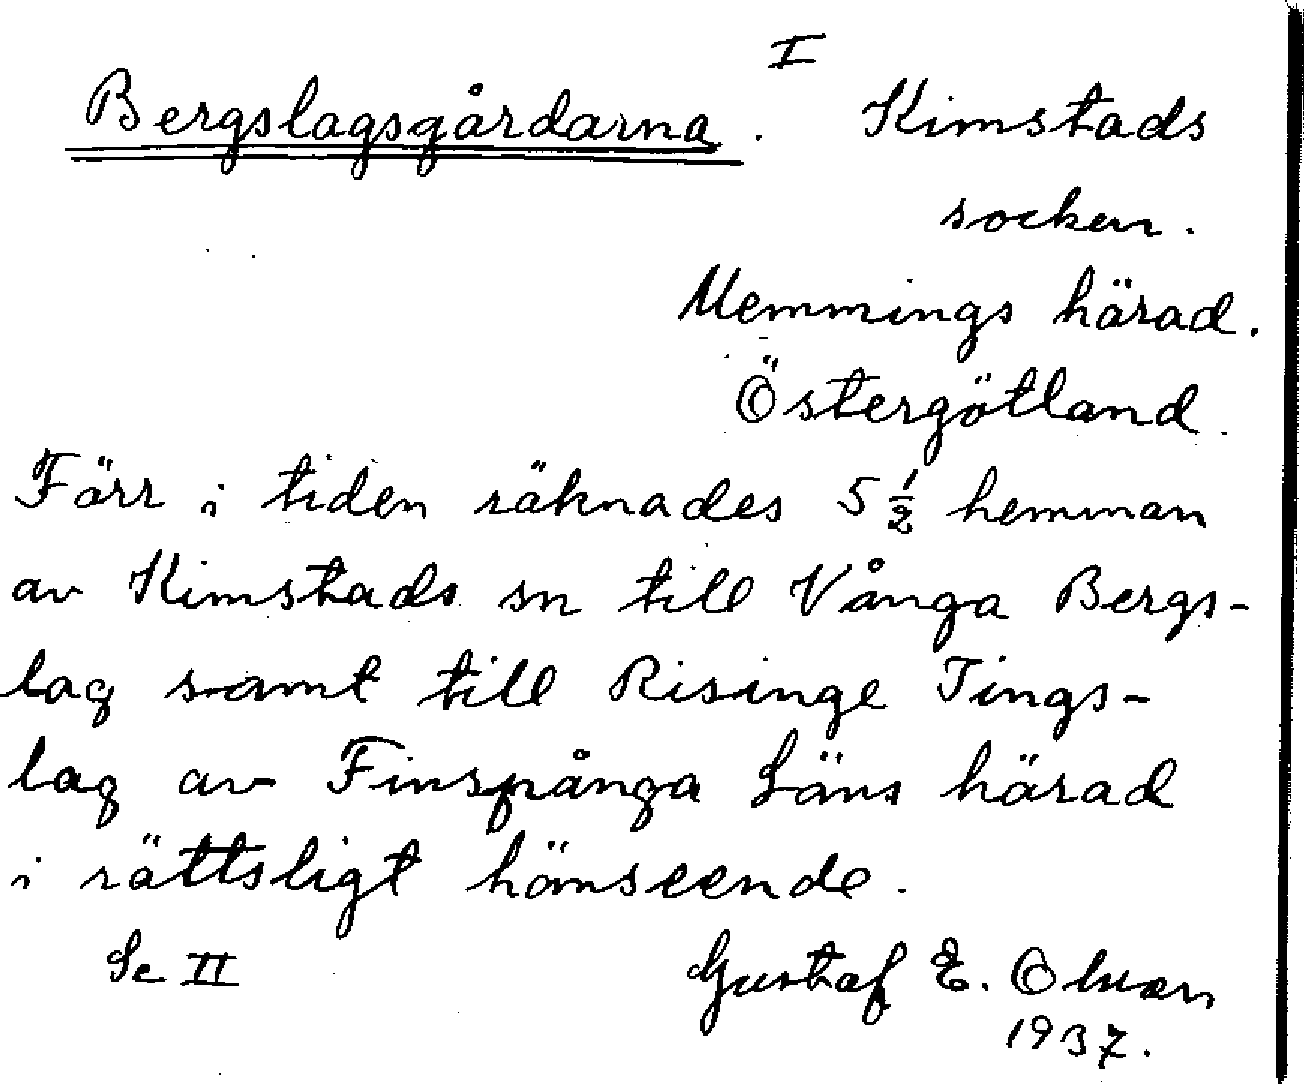 I
Bergslagsgårdarna. Kimstads
socken.
Memmings härad.
Östergötland.
Förr i tiden räknades 5 1/2 hemman
av Kimstads sn till Vånga Bergs-
lag samt till Risinge Tings-
lag av Finspånga Läns härad
i rättsligt hänseende.
Se II Gustaf E. Olsson
1937.